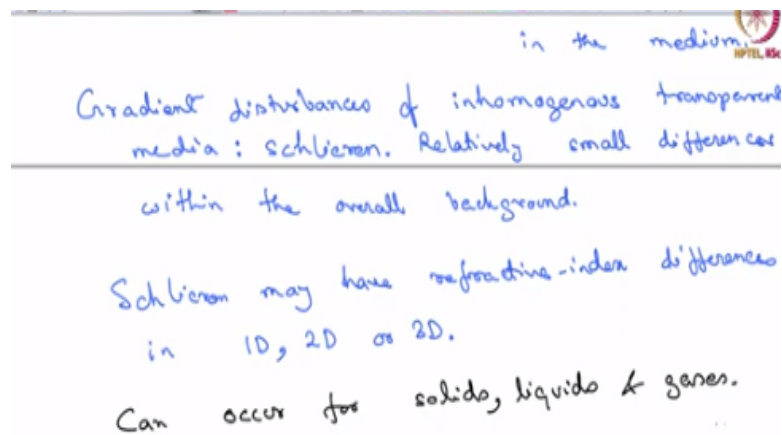 in the medium.
NPTEL, IISc
Gradient disturbances of inhomogenous transparent
media : Schlieren. Relatively small differences
within the overall background.
Schlieren may have refractive-index differences
in 1D, 2D or 3D.
Can occur for solids, liquids & gases.